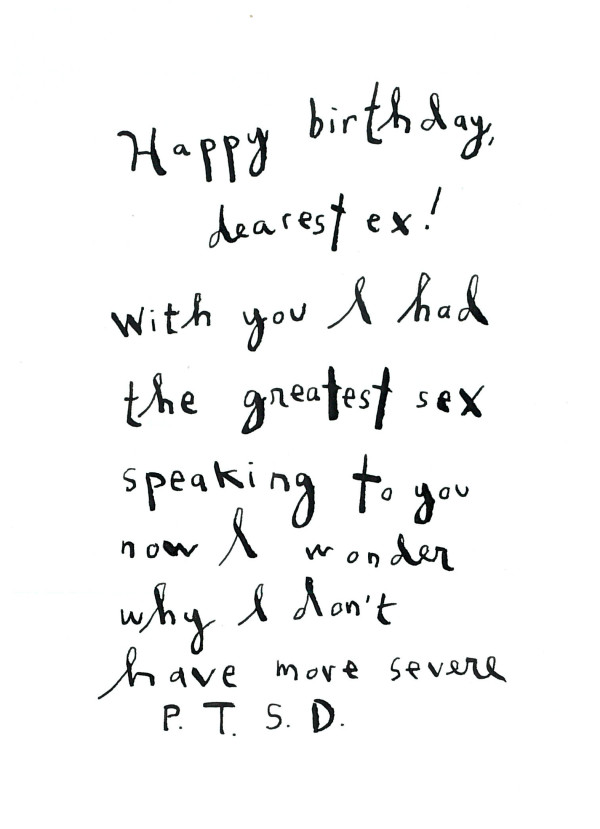 Happy birthday,
dearest ex!
With you I had
the greatest sex
speaking to you
now I wonder
why I don't
have more severe
P. T. S. D.